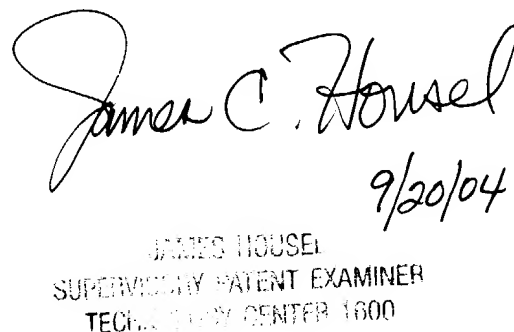 James C. Housel
9/20/04
JAMES HOUSEL
SUPERVISORY PATENT EXAMINER
TECHNOLOGY CENTER 1600